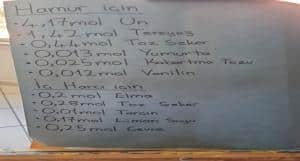 Hamur için
• 4,17mol Un
• 1,42mol Tereyağ
• 0,44mol Toz Şeker
• 0,013mol Yumurta
• 0,025mol Kabartma Tozu
• 0,012mol Vanilin
İç Harcı için
• 0,2mol Elma
• 0,28mol Toz Şeker
• 0,01mol Tarçın
• 0,17mol Limon Suyu
• 0,25mol Ceviz